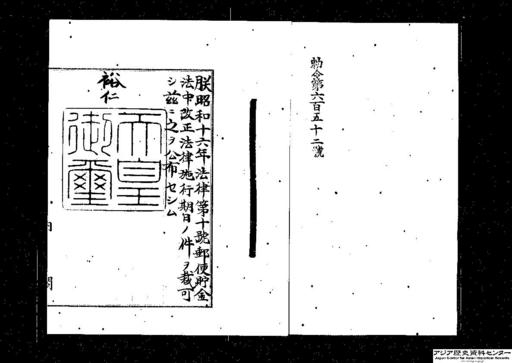 勅令第六百五十二號
朕昭和十六年法律第十號郵便貯金
法中改正法律施行期日ノ件ヲ裁可
シ茲ニ之ヲ公布セシム
裕仁
天皇
御璽
内閣
アジア歴史資料センター
Japan Center for Asian Historical Records